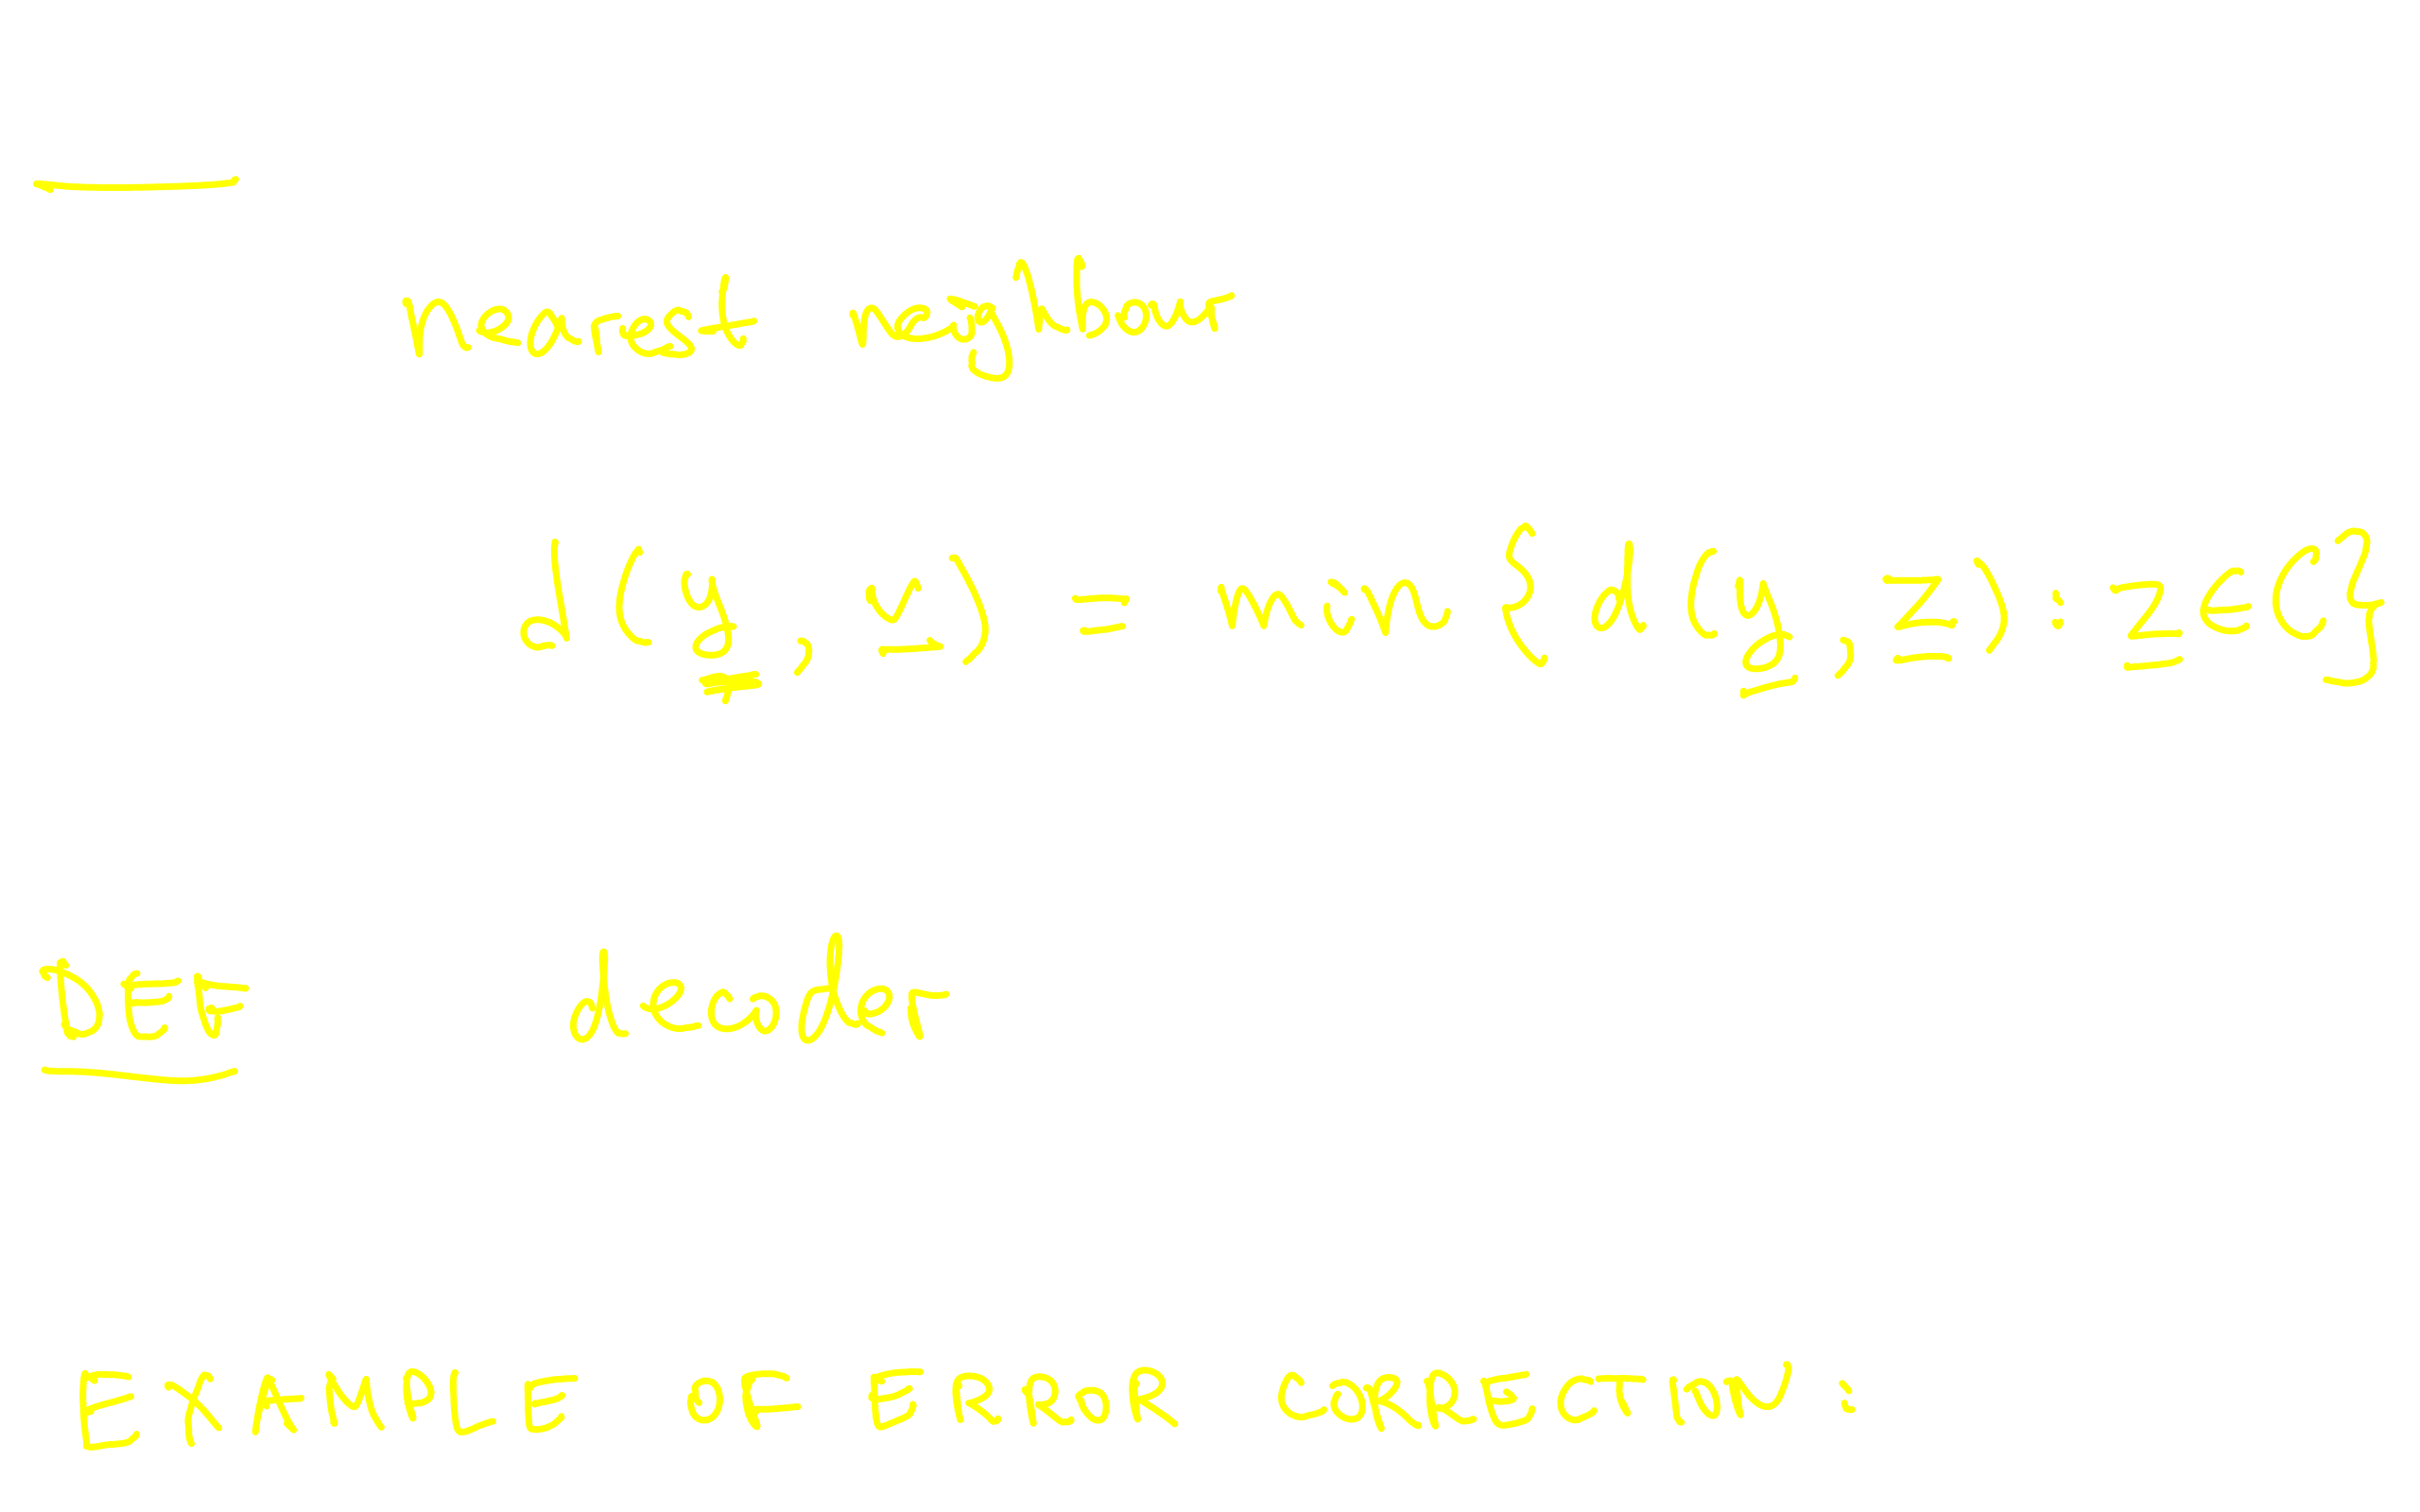 nearest neighbour
d(y, v) = min{d(y, z): z∈C}
DEF decoder
EXAMPLE OF ERROR CORRECTION: